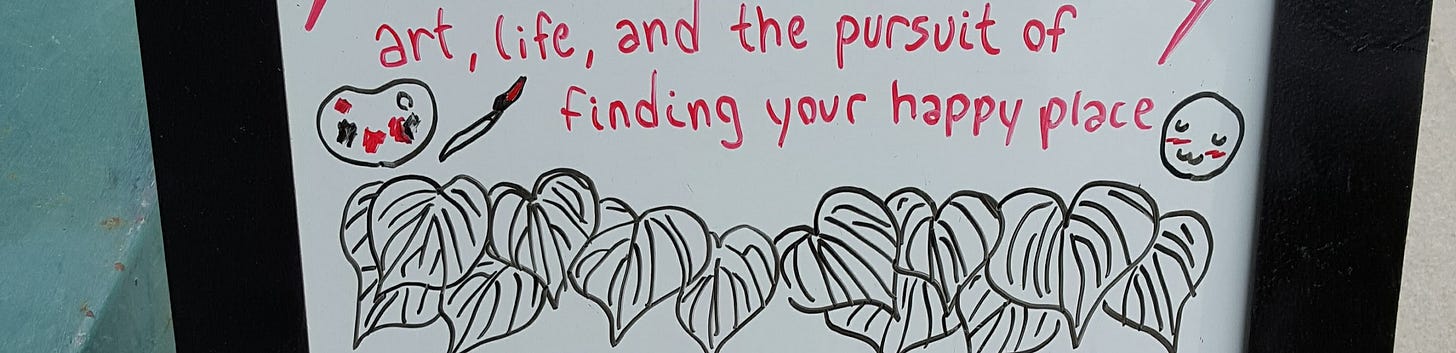 art, life, and the pursuit of
finding your happy place